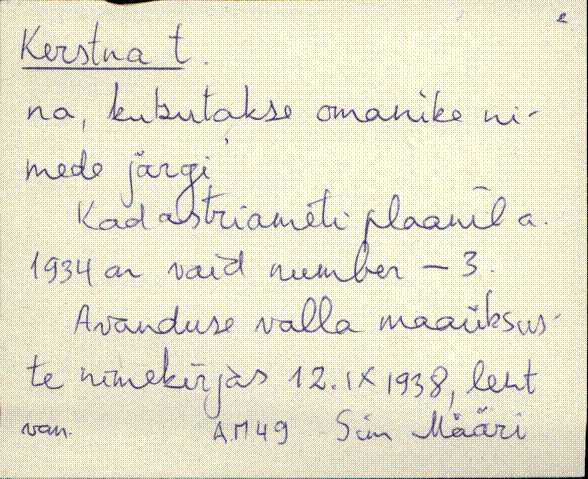 e
Kerstna t.
na, kutsutakse omanike ni-
mede järgi
Kadastriameti plaanil a.
1934 on vaid number – 3.
Avanduse valla maaüksus-
te nimekirjas 12.IX 1938, leht
van. AM49 Siin Määri